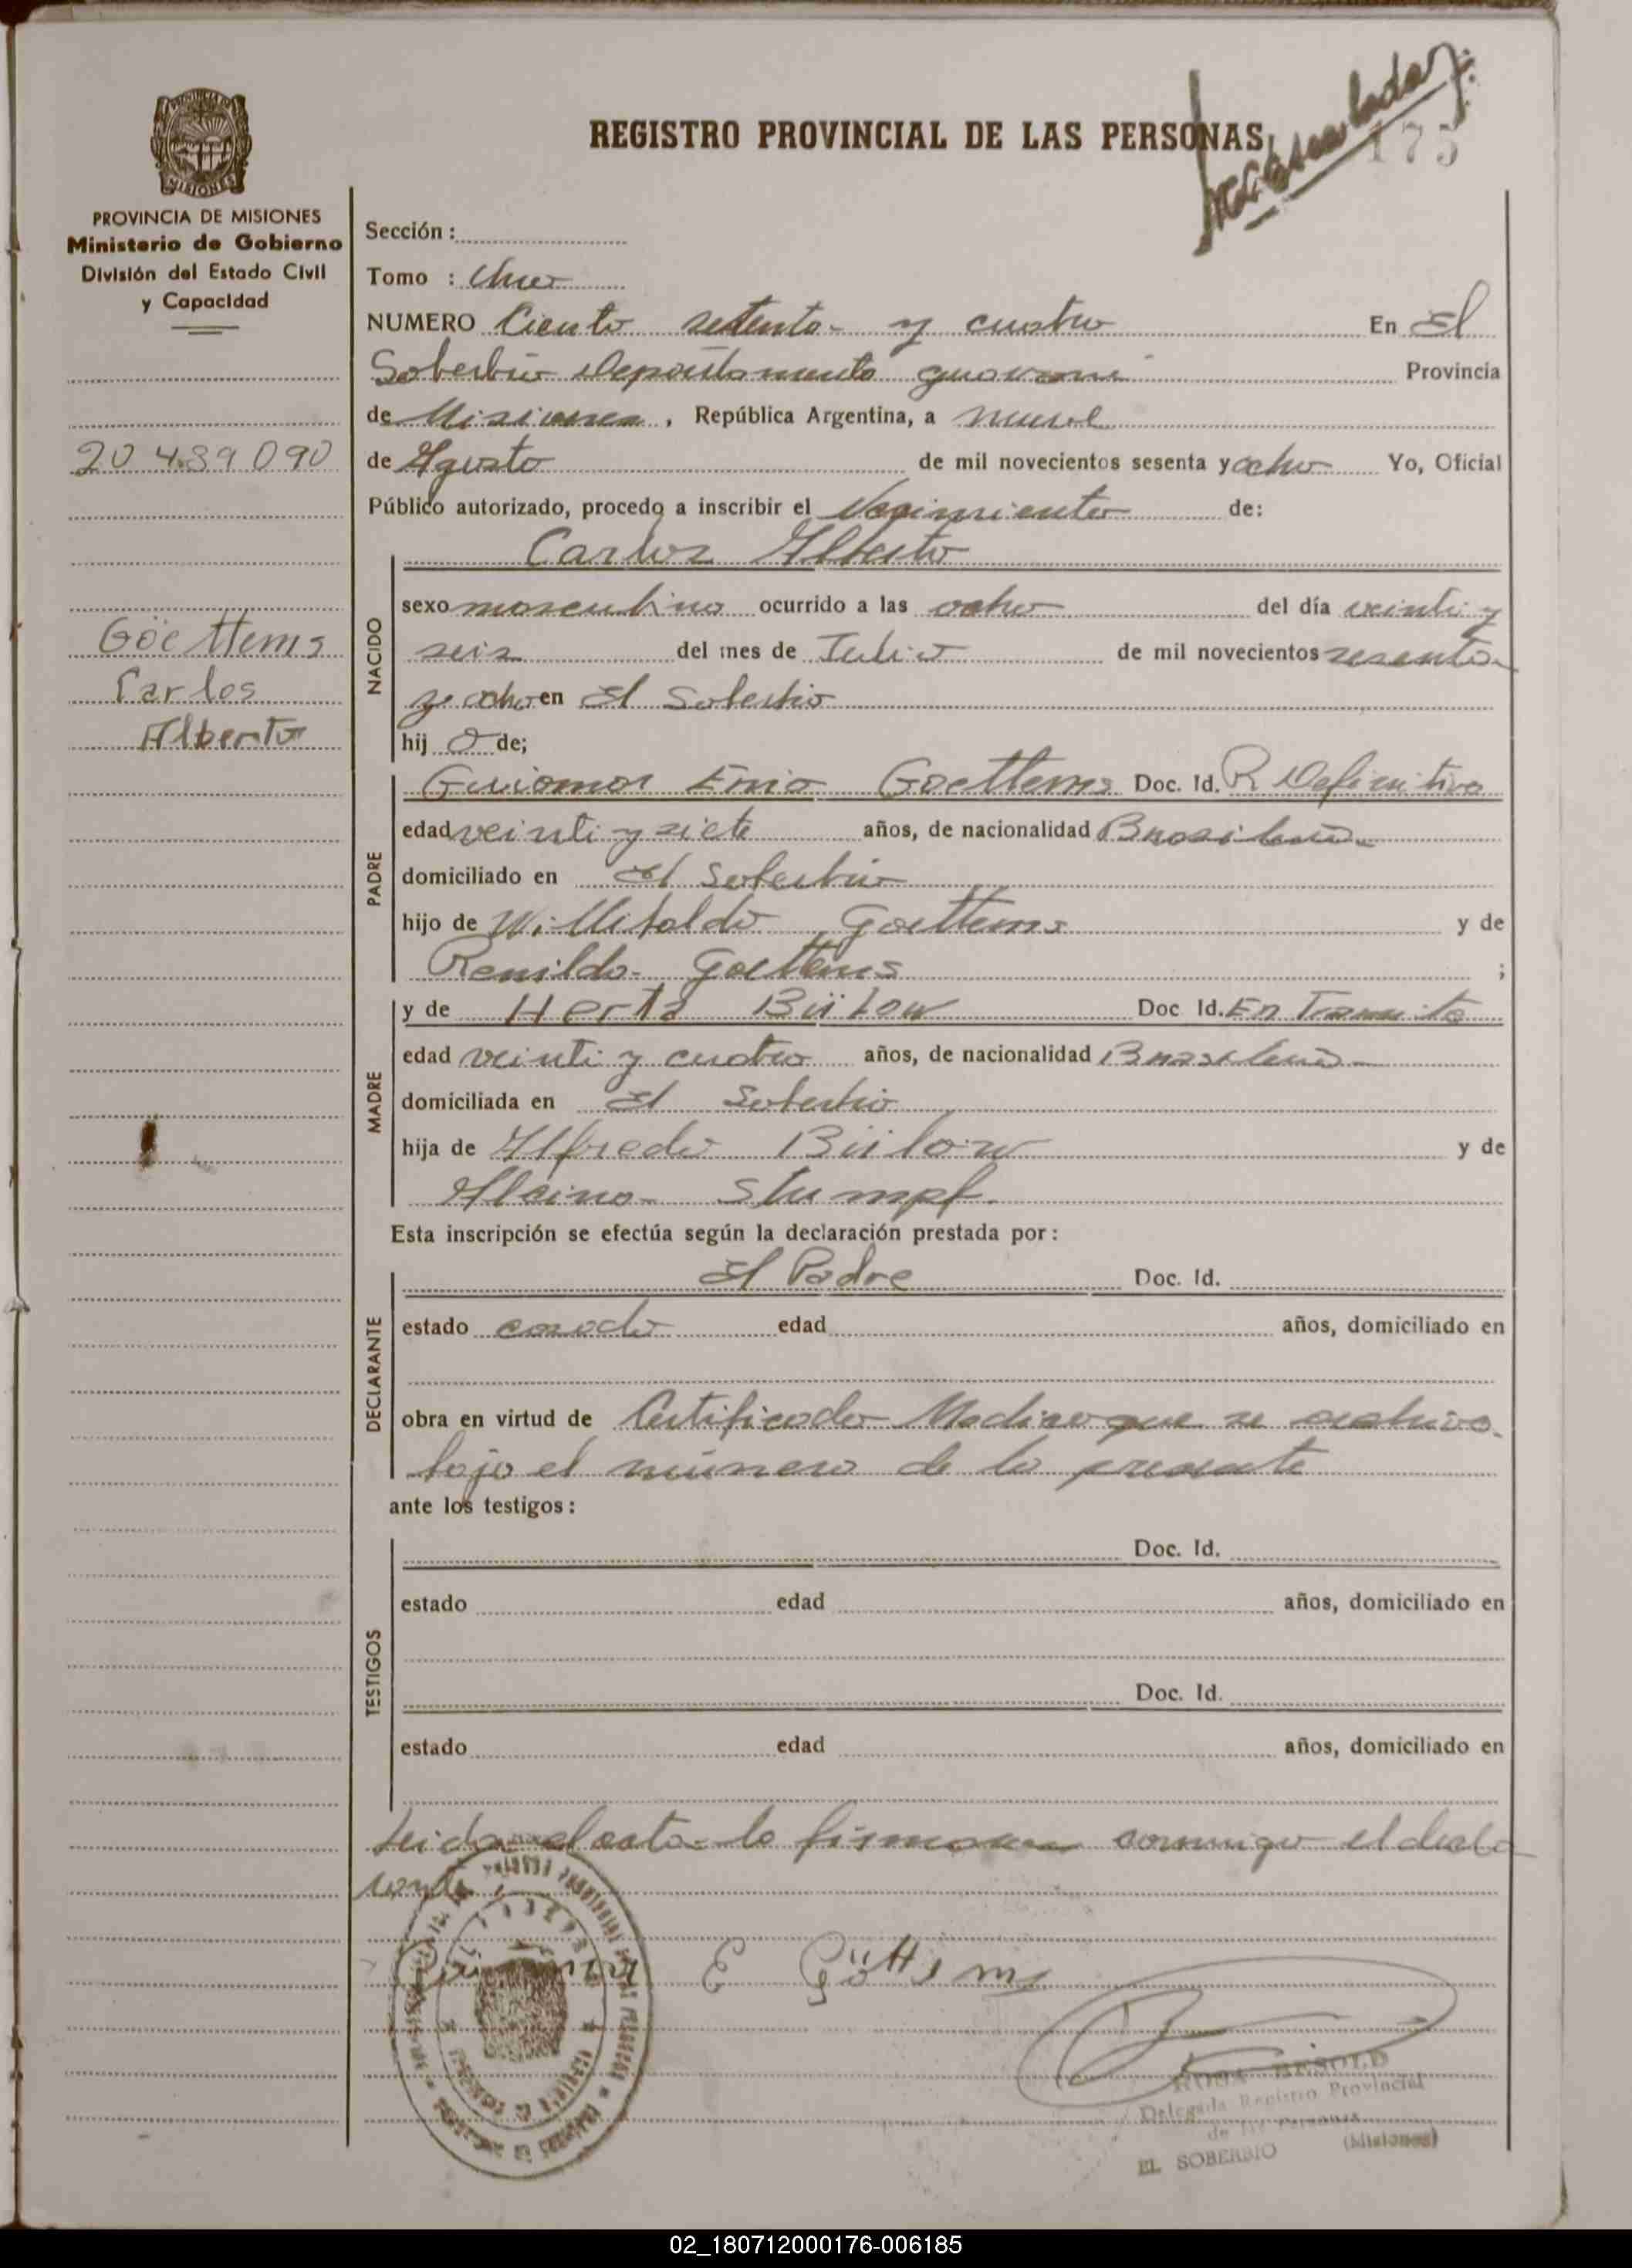 REGISTRO PROVINCIAL DE LAS PERSONAS
175
PROVINCIA DE MISIONES
Ministerio de Gobierno
División del Estado Civil
y Capacidad
20.489.090
Göettems
Carlos
Alberto
Sección :
Tomo : Uno
NUMERO Ciento setenta y cuatro En El
Soberbio Departamento guarani Provincia
de Misiones, República Argentina, a nueve
de Agosto de mil novecientos sesenta y ocho Yo, Oficial
Público autorizado, procedo a inscribir el Nacimiento de:
Carlos Alberto
NACIDO
sexo masculino ocurrido a las ocho del día veinti y
seis del mes de Julio de mil novecientos sesenta
y ocho en El Soberbio
hij o de;
PADRE
Guiomar Enio Goettems Doc. Id. R Definitiva
edad veinti y siete años, de nacionalidad Brasileña
domiciliado en El Soberbio
hijo de Willibaldo Goettems y de
Renilda Goettems ;
MADRE
y de Herta Bülow Doc Id. En Tramite
edad veinti y cuatro años, de nacionalidad Brasileña
domiciliada en El Soberbio
hija de Alfredo Bülow y de
Alsina Stumpf.
Esta inscripción se efectúa según la declaración prestada por:
DECLARANTE
El Padre Doc. Id.
estado casado edad años, domiciliado en
obra en virtud de Certificado Medico que se archiva
bajo el número de la presente
ante los testigos:
TESTIGOS
Doc. Id.
estado edad años, domiciliado en
Doc. Id.
estado edad años, domiciliado en
Leida el acta la firma conmigo el decla
rante
E Göttems
ROSA BESOLD
Delegada Registro Provincial
de las Personas
EL SOBERBIO (Misiones)
02_180712000176-006185